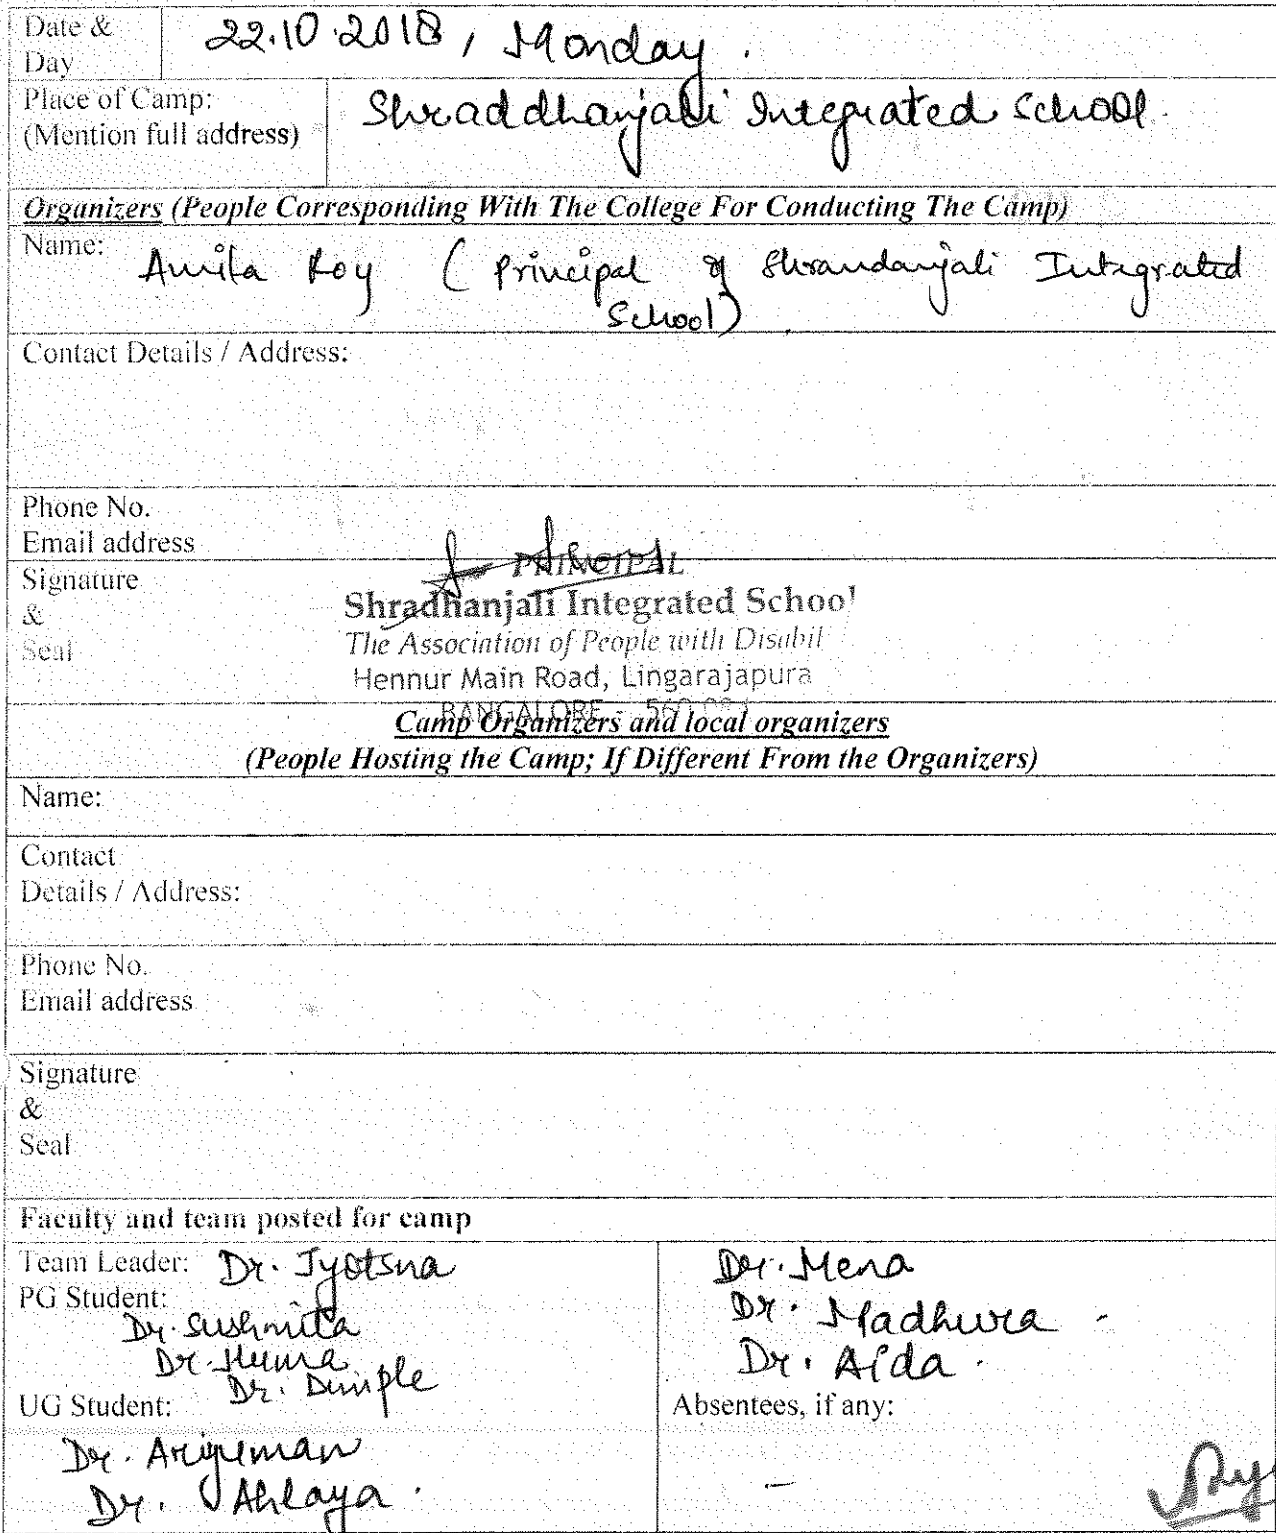 Date &
Day
22.10.2018, Monday.
Place of Camp:
(Mention full address)
Shraddhanjali Integrated School.
Organizers (People Corresponding With The College For Conducting The Camp)
Name: Amita Roy (Principal of Shrandanjali Integrated
School)
Contact Details / Address:
Phone No.
Email address
Signature
&
Seal
PRINCIPAL
Shradhanjali Integrated School
The Association of People with Disabil
Hennur Main Road, Lingarajapura
BANGALORE - 560
Camp Organizers and local organizers
(People Hosting the Camp; If Different From the Organizers)
Name:
Contact
Details / Address:
Phone No.
Email address
Signature
&
Seal
Faculty and team posted for camp
Team Leader: Dr. Jyotsna
PG Student:
Dr. Sushmita
Dr. Huma
Dr. Dimple
UG Student:
Dr. Arijeman
Dr. Ahlaya.
Dr. Mena
Dr. Madhura -
Dr. Aida.
Absentees, if any:
—